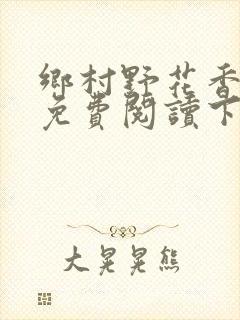 鄉村野花香
免費閱讀下
大晃晃熊